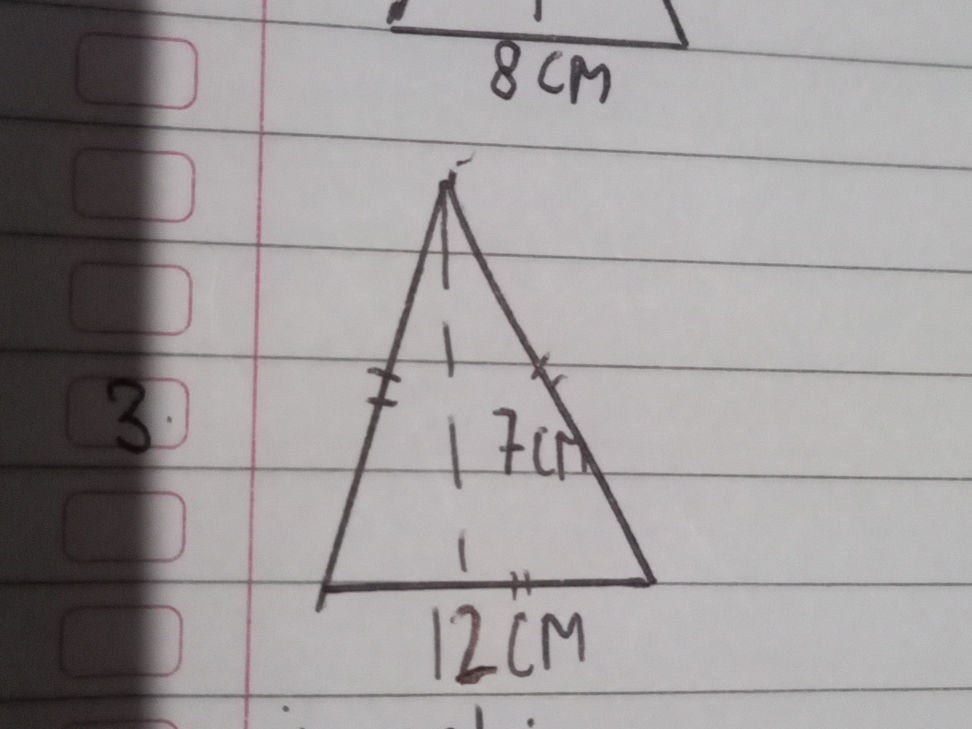 8 CM
3.
7CM
12 CM